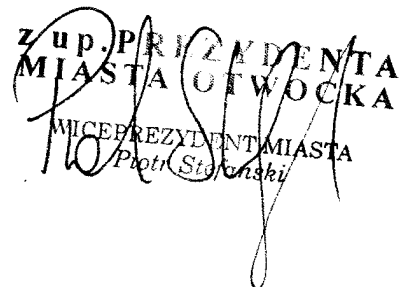 z up. PREZYDENTA
MIASTA OTWOCKA
WICEPREZYDENT MIASTA
Piotr Stefański